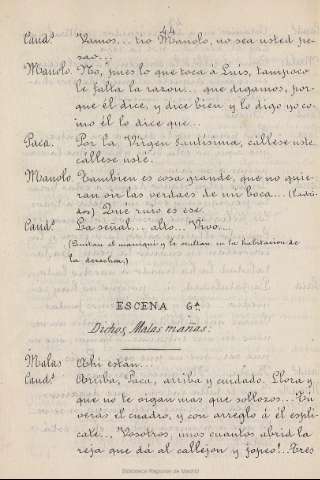 44
Candª. Vamos... tio Manolo, no sea usted pe-
sao...
Manolo. No, pues lo que toca á Luis, tampoco
le falta la razon... que digamos, por-
que él dice, y dice bien y lo digo yo co-
mo él lo dice que...
Paca. Por la Virgen Santísima, cállese uste
cállese usté.
Manolo. Tambien es cosa grande, que no quie-
ran oir las verdaes de mi boca... (Ladri-
dos) Qué ruio es ese.
Candª. La señal... alto... Vivo...
(Quitan el maniquí y le ocultan en la habitacion de
la derecha.)
ESCENA 6ª
Dichos, Malas mañas.
Malas Ahi están...
Candª. Arriba, Paca, arriba y cuidado. Llora y
que no te oigan mas que sollozos... Tú
verás el cuadro, y con arreglo á él espli-
cate... Vosotros, unos cuantos abrid la
reja que dá al callejon y ¡opeo!.. Tres
Biblioteca Regional de Madrid